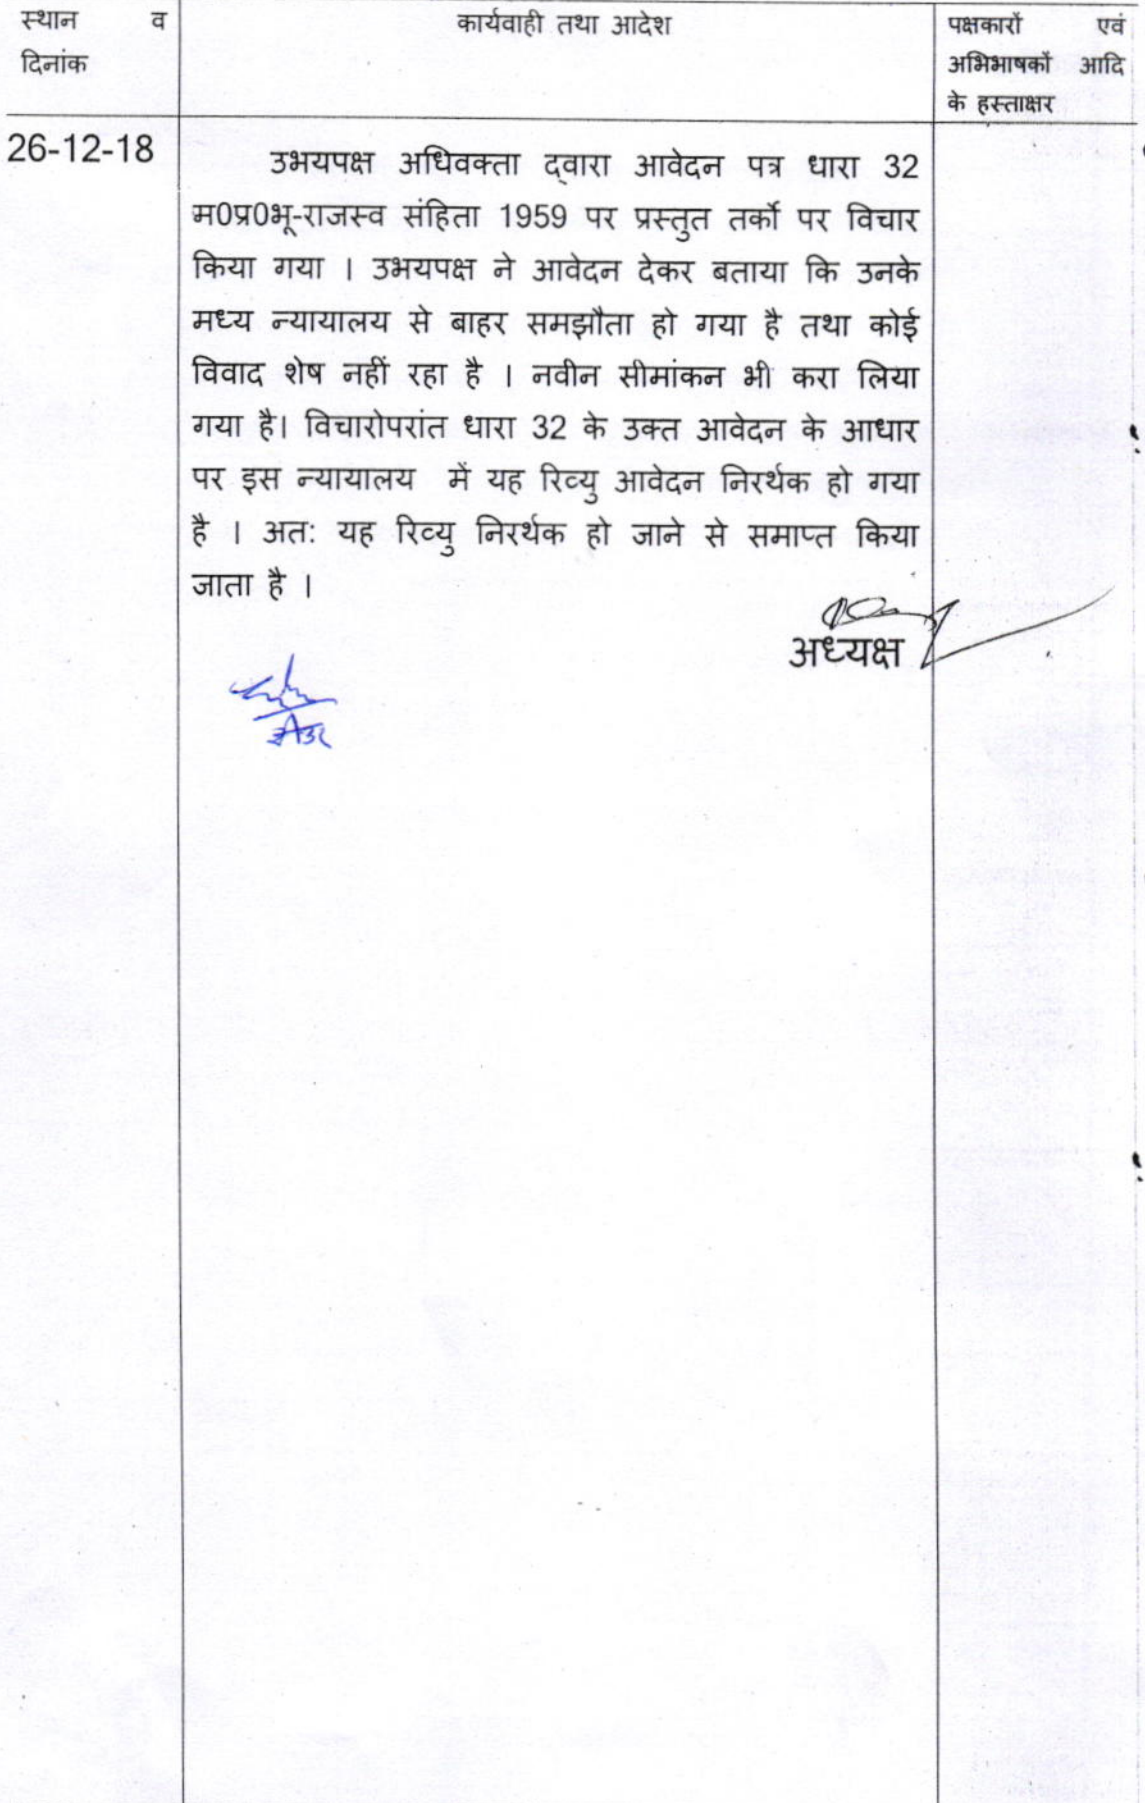 स्थान व
दिनांक
कार्यवाही तथा आदेश
पक्षकारों एवं
अभिभाषकों आदि
के हस्ताक्षर
26-12-18
उभयपक्ष अधिवक्ता द्वारा आवेदन पत्र धारा 32
म0प्र0भू-राजस्व संहिता 1959 पर प्रस्तुत तर्को पर विचार
किया गया । उभयपक्ष ने आवेदन देकर बताया कि उनके
मध्य न्यायालय से बाहर समझौता हो गया है तथा कोई
विवाद शेष नहीं रहा है । नवीन सीमांकन भी करा लिया
गया है। विचारोपरांत धारा 32 के उक्त आवेदन के आधार
पर इस न्यायालय में यह रिव्यु आवेदन निरर्थक हो गया
है । अत: यह रिव्यु निरर्थक हो जाने से समाप्त किया
जाता है ।
अध्यक्ष